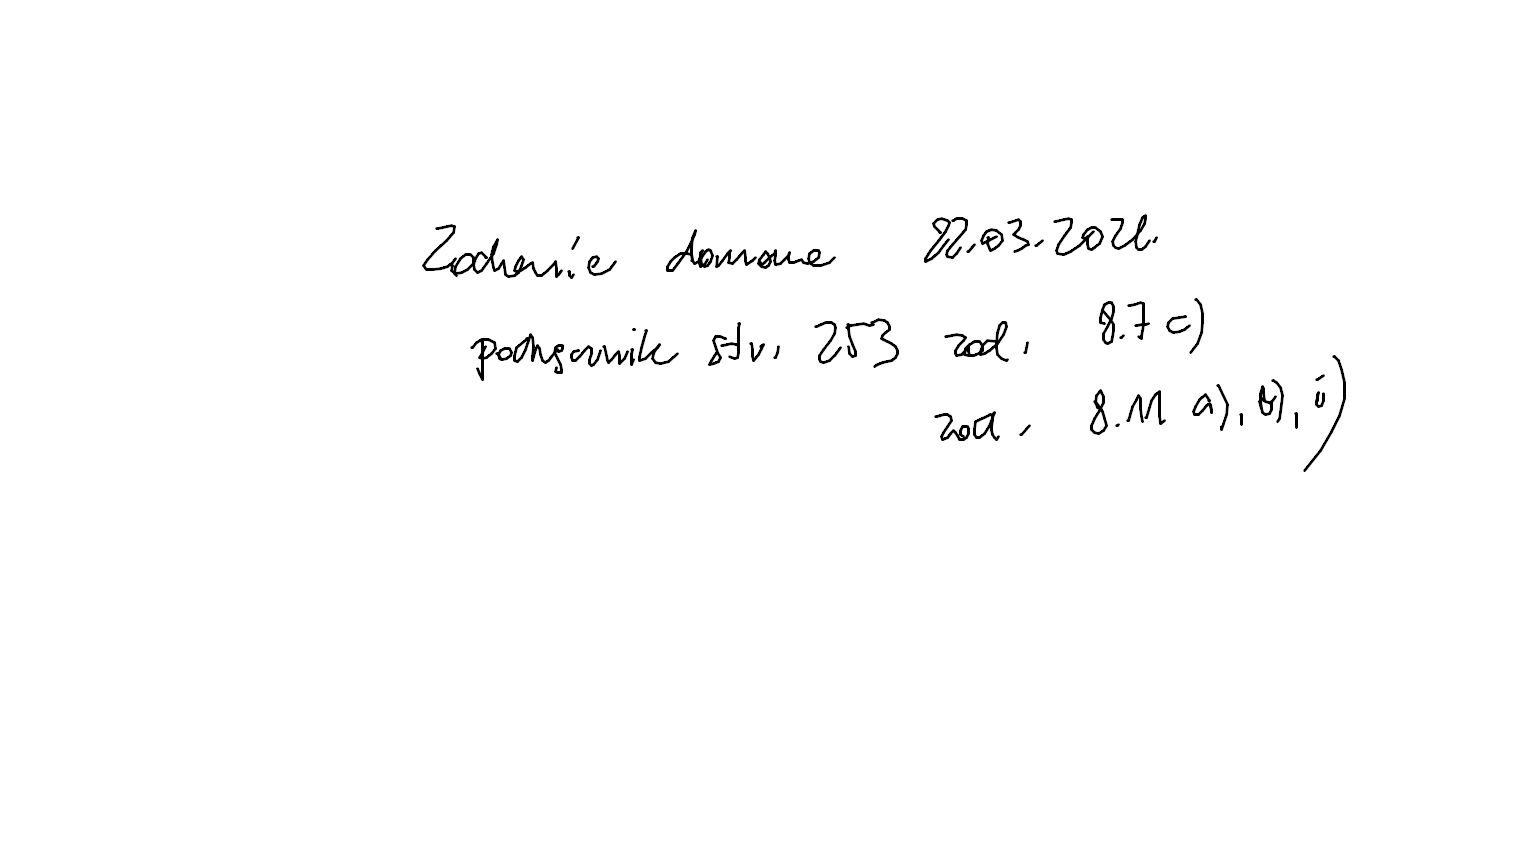 Zadanie domowe 22.03.2021.
podręcznik str. 253 zad. 8.7 c)
zad. 8.11 a), b), i)